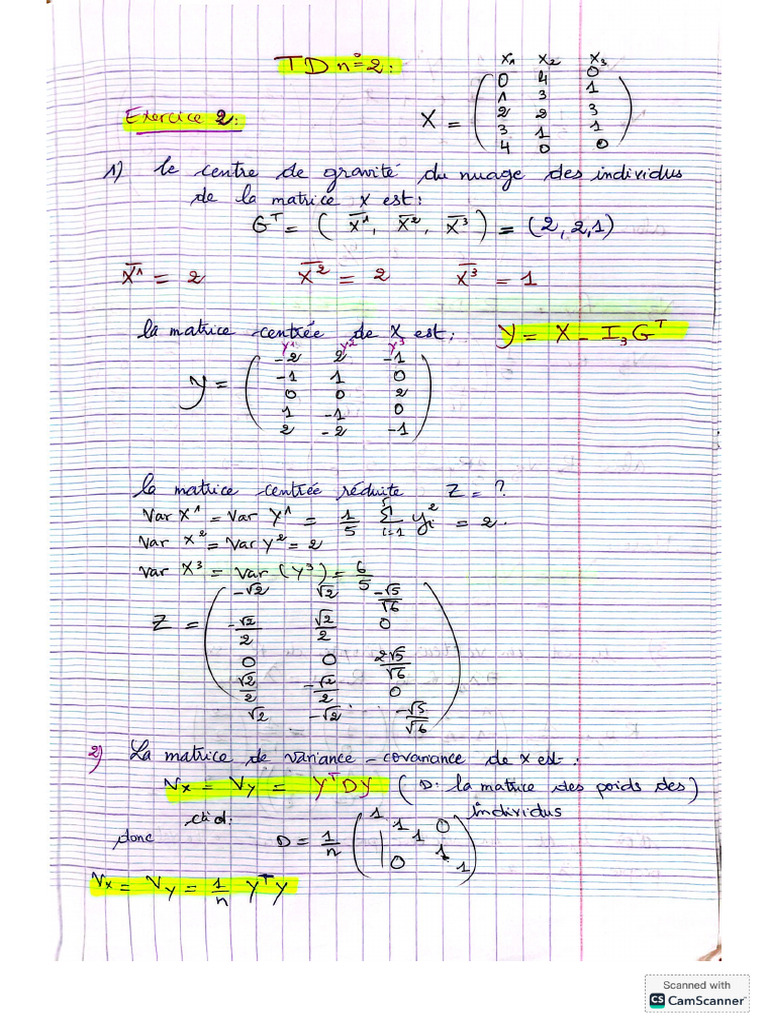 TD n°=2:
Exercice 2:
X₁ X₂ X₃
X = ( 0 4 0
1 3 1
2 2 3
3 1 1
4 0 0 )
1) le centre de gravité du nuage des individus
de la matrice X est:
Gᵀ = ( X̄¹, X̄², X̄³ ) = (2, 2, 1)
X̄¹ = 2 X̄² = 2 X̄³ = 1
la matrice centrée de X est: Y = X - I₃Gᵀ
Y¹ Y² Y³
Y = ( -2 2 -1
-1 1 0
0 0 2
1 -1 0
2 -2 -1 )
la matrice centrée réduite Z = ?
Var X¹ = Var Y¹ = 1/5 5∑i=1 yᵢ² = 2.
Var X² = Var Y² = 2
Var X³ = Var (Y³) = 6/5
Z = ( -√2 √2 -√5/√6
-√2/2 √2/2 0
0 0 2√5/√6
√2/2 -√2/2 0
√2 -√2 -√5/√6 )
2) La matrice de variance-covariance de X est:
Vx = Vy = YᵀDY ( D: la matrice des poids des)
individus
càd:
donc D = 1/n ( 1 1 0
1
1
0 1 )
Vx = Vy = 1/n YᵀY
Scanned with
CS CamScanner